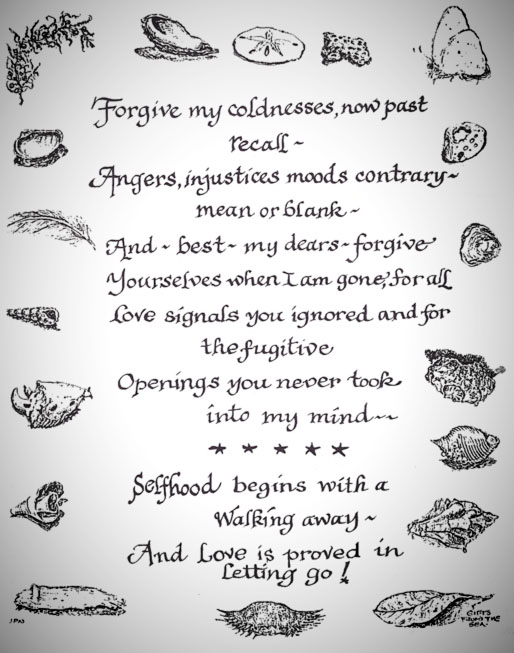 'Forgive my coldnesses, now past
recall ~
Angers, injustices moods contrary~
mean or blank ~
And ~ best ~ my dears ~ forgive
Yourselves when I am gone, for all
Love signals you ignored and for
the fugitive
Openings you never took
into my mind~~
★ ★ ★ ★ ★
Selfhood begins with a
Walking away ~
And Love is proved in
Letting go !
GIFTS
FROM THE
SEA.